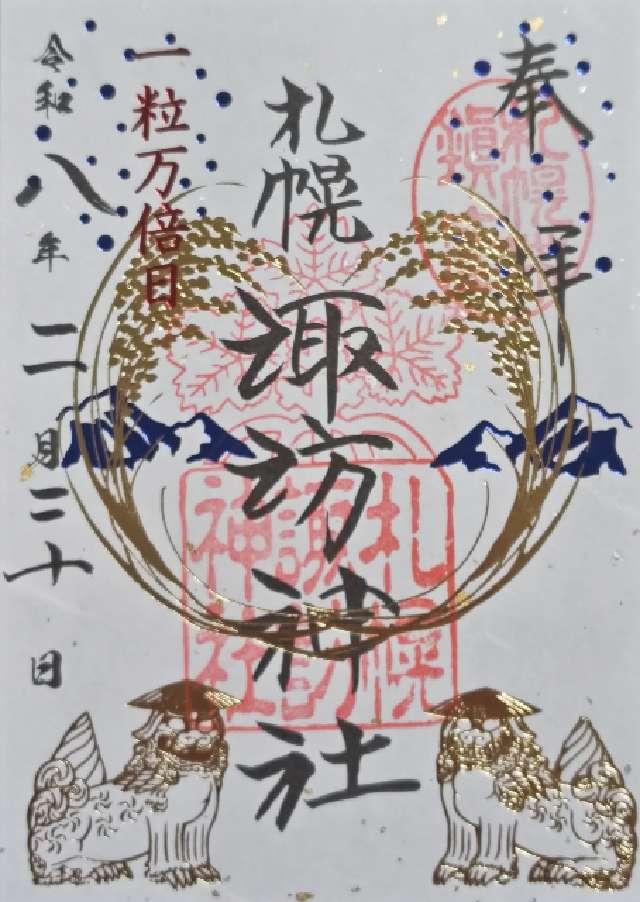 奉拝
札幌諏訪神社
一粒万倍日
令和八年二月二十日
札幌諏訪神社